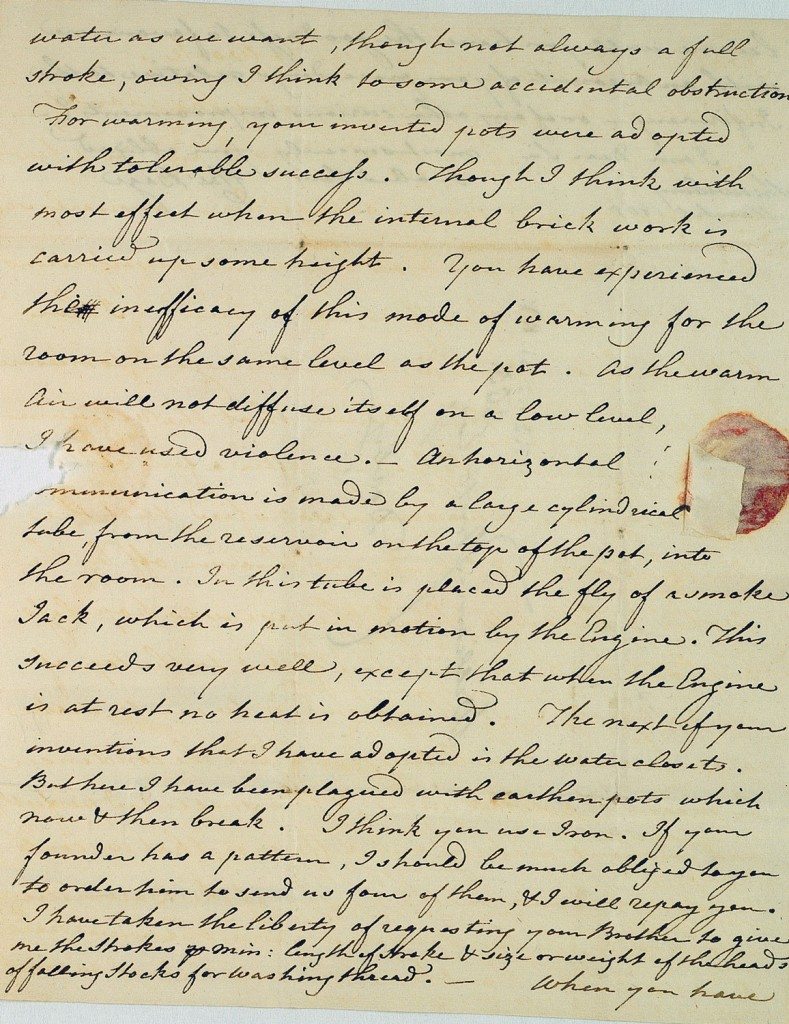 water as we want, though not always a full
stroke, owing I think to some accidental obstruction
For warming, your inverted pots were adopted
with tolerable success. Though I think with
most effect when the internal brick work is
carried up some height. You have experienced
the inefficacy of this mode of warming for the
room on the same level as the pot. As the warm
Air will not diffuse itself on a low level,
I have used violence. — An horizontal
mmunication is made by a large cylindrical
tube, from the reservoir on the top of the pot, into
the room. In this tube is placed the fly of a smoke
Jack, which is put in motion by the Engine. This
succeeds very well, except that when the Engine
is at rest no heat is obtained. The next of your
inventions that I have adopted is the water closets.
But here I have been plagued with earthen pots which
now & then break. I think you use Iron. If your
founder has a pattern, I should be much obliged to you
to order him to send us four of them, & I will repay you.
I have taken the liberty of requesting your Brother to give
me the Strokes p min: length of stroke & size or weight of the heads
of falling Stocks for washing thread. — When you have